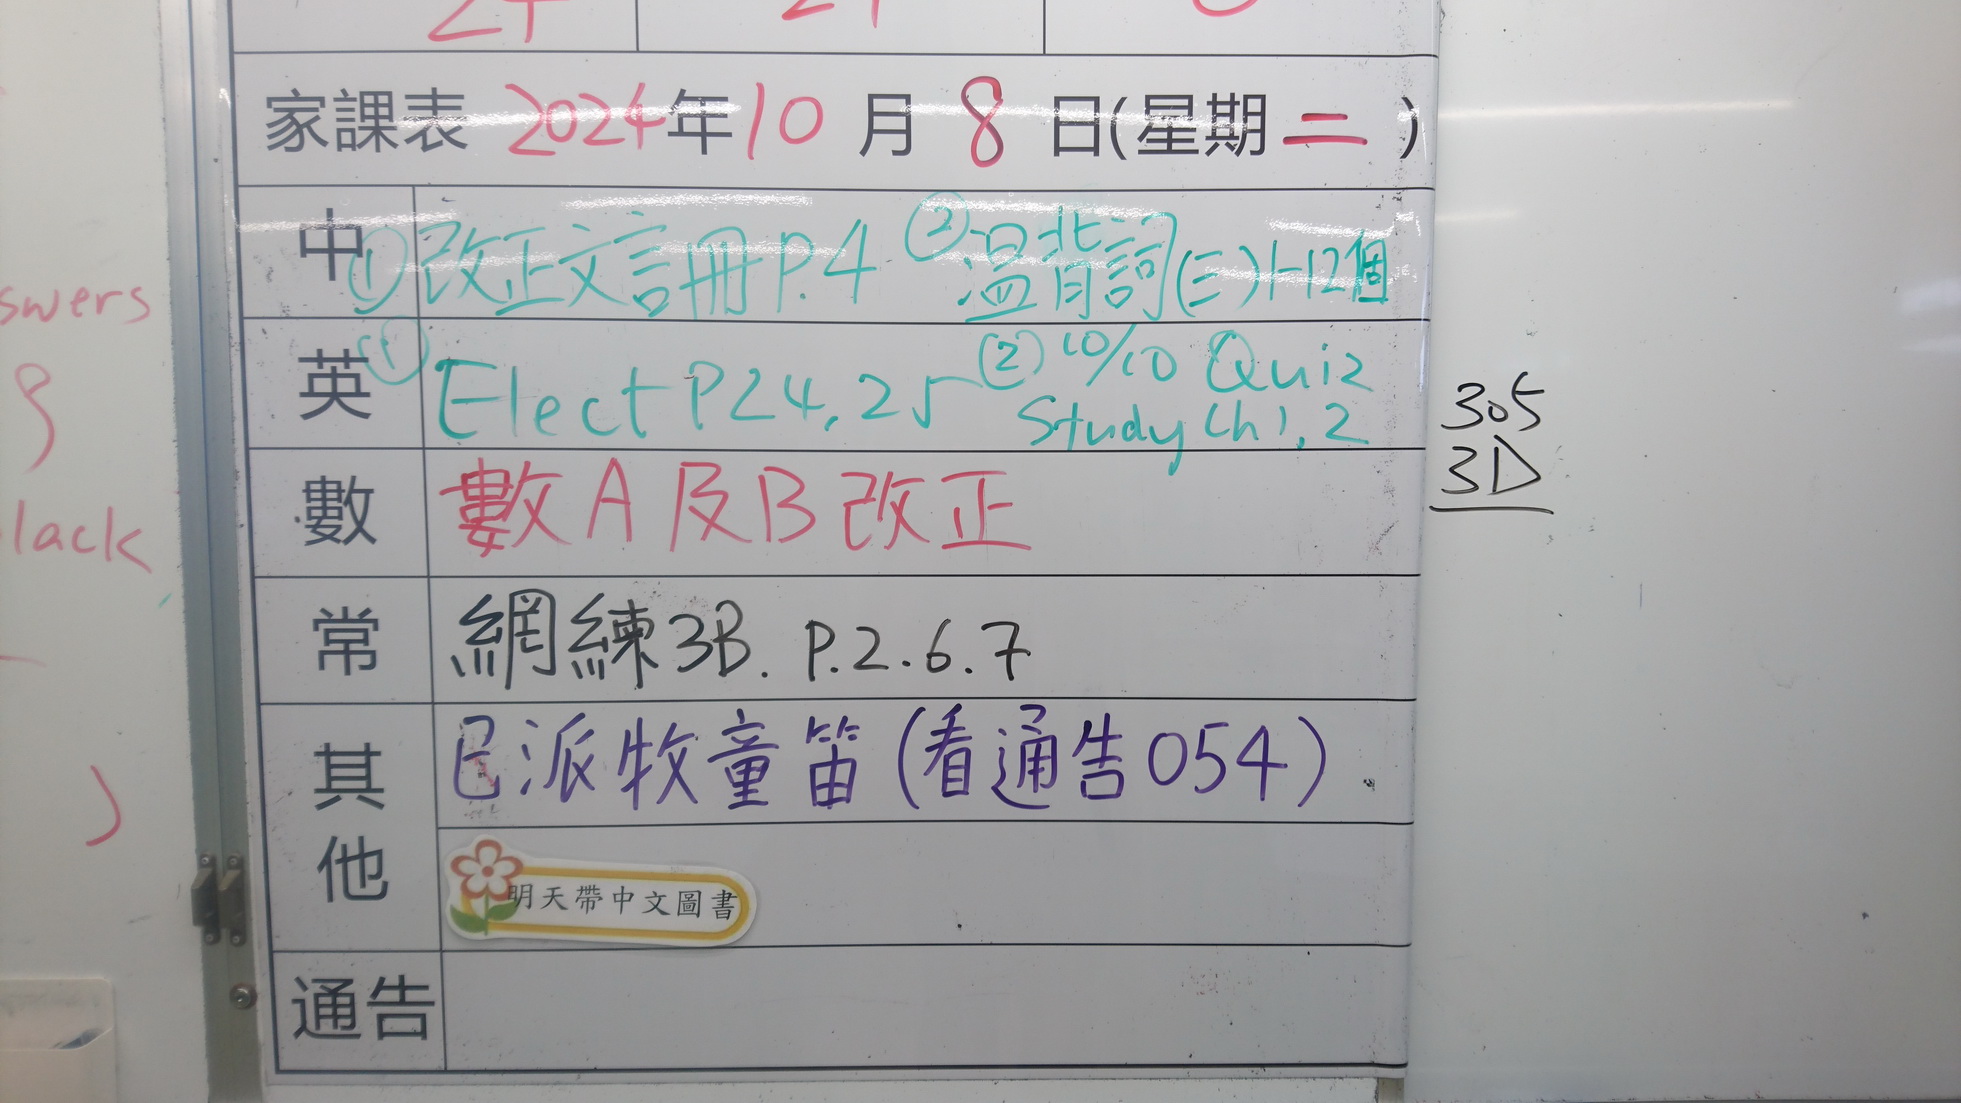 家課表 2024年10月8日(星期二)
中 ① 改正文言冊 P.4 ② 溫背詞(三)1-12個
英 ① Elect P24,25 ② 10/10 Quiz
Study Ch1,2
數 數A及B改正
常 網練3B. P.2.6.7
其他 已派牧童笛(看通告054).
明天帶中文圖書
通告
305
3D
swers
lack